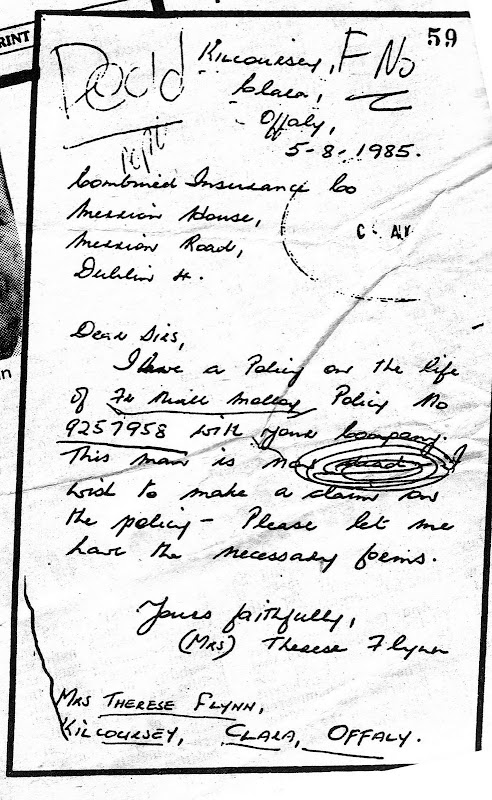 RINT
59
Dead
F No
Kilcoursey,
Clara,
Offaly,
5-8-1985.
Combined Insurance Co
Mession House,
Mession Road,
Dublin 4.
Dear Sirs,
I have a Policy on the life
of Fr Niall Molloy Policy No
9257958 with your Company.
This man is now dead I
wish to make a claim on
the policy - Please let me
have the necessary forms.
Yours faithfully,
(Mrs) Therese Flynn
MRS THERESE FLYNN,
KILCOURSEY, CLARA, OFFALY.
n